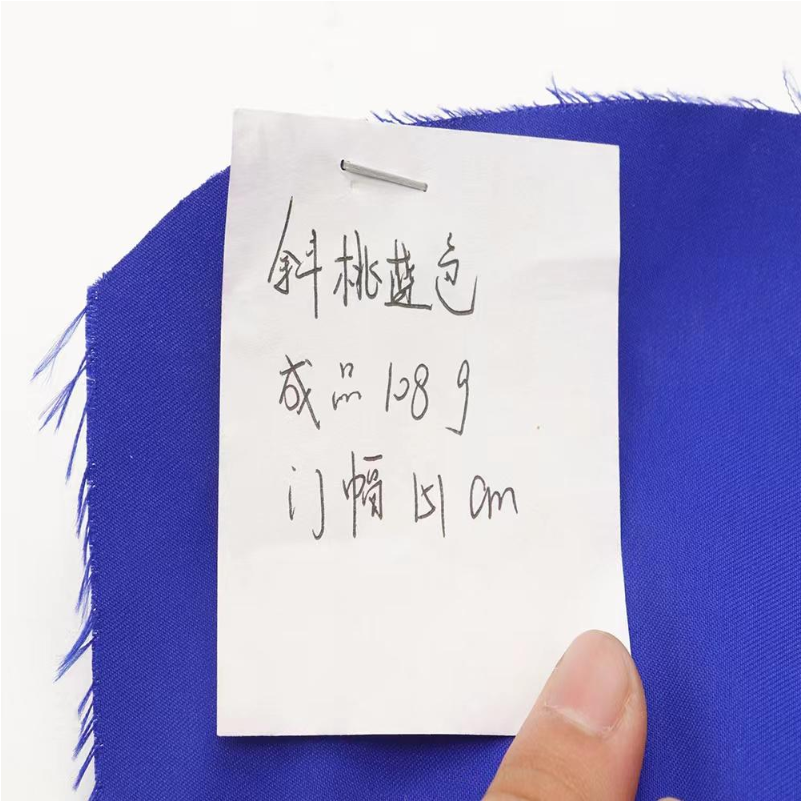 斜桃蓝色
成品108g
门幅151cm